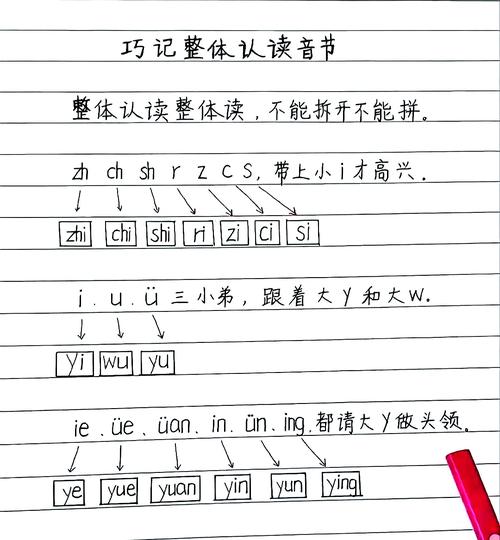 巧记整体认读音节
整体认读整体读，不能拆开不能拼。
zh ch sh r z c s，带上小i才高兴．
zhi chi shi ri zi ci si
i．u．ü 三小弟，跟着大y和大w．
yi wu yu
ie．üe．üan．in．ün．ing．都请大y做头领．
ye yue yuan yin yun ying